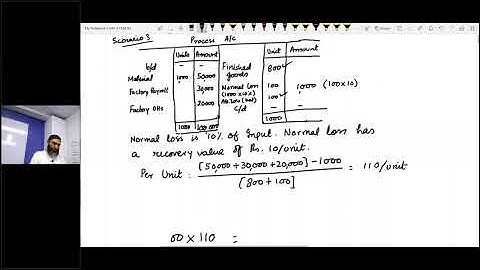 Scenario 3 Process A/C
Units Amount Unit Amount
b/d - - Finished goods 800
Material 1000 50,000 Normal Loss (1000x10%) 100 1000 (100x10)
Factory Payroll 30,000 100
Factory OHs 20,000 c/d -
1000 100,000 1000
Normal Loss is 10% of Input. Normal loss has
a recovery value of Rs. 10/unit.
Per Unit: [50,000+30,000+20,000] - 1000 = 110/unit
[800+100]
00 x 110 =